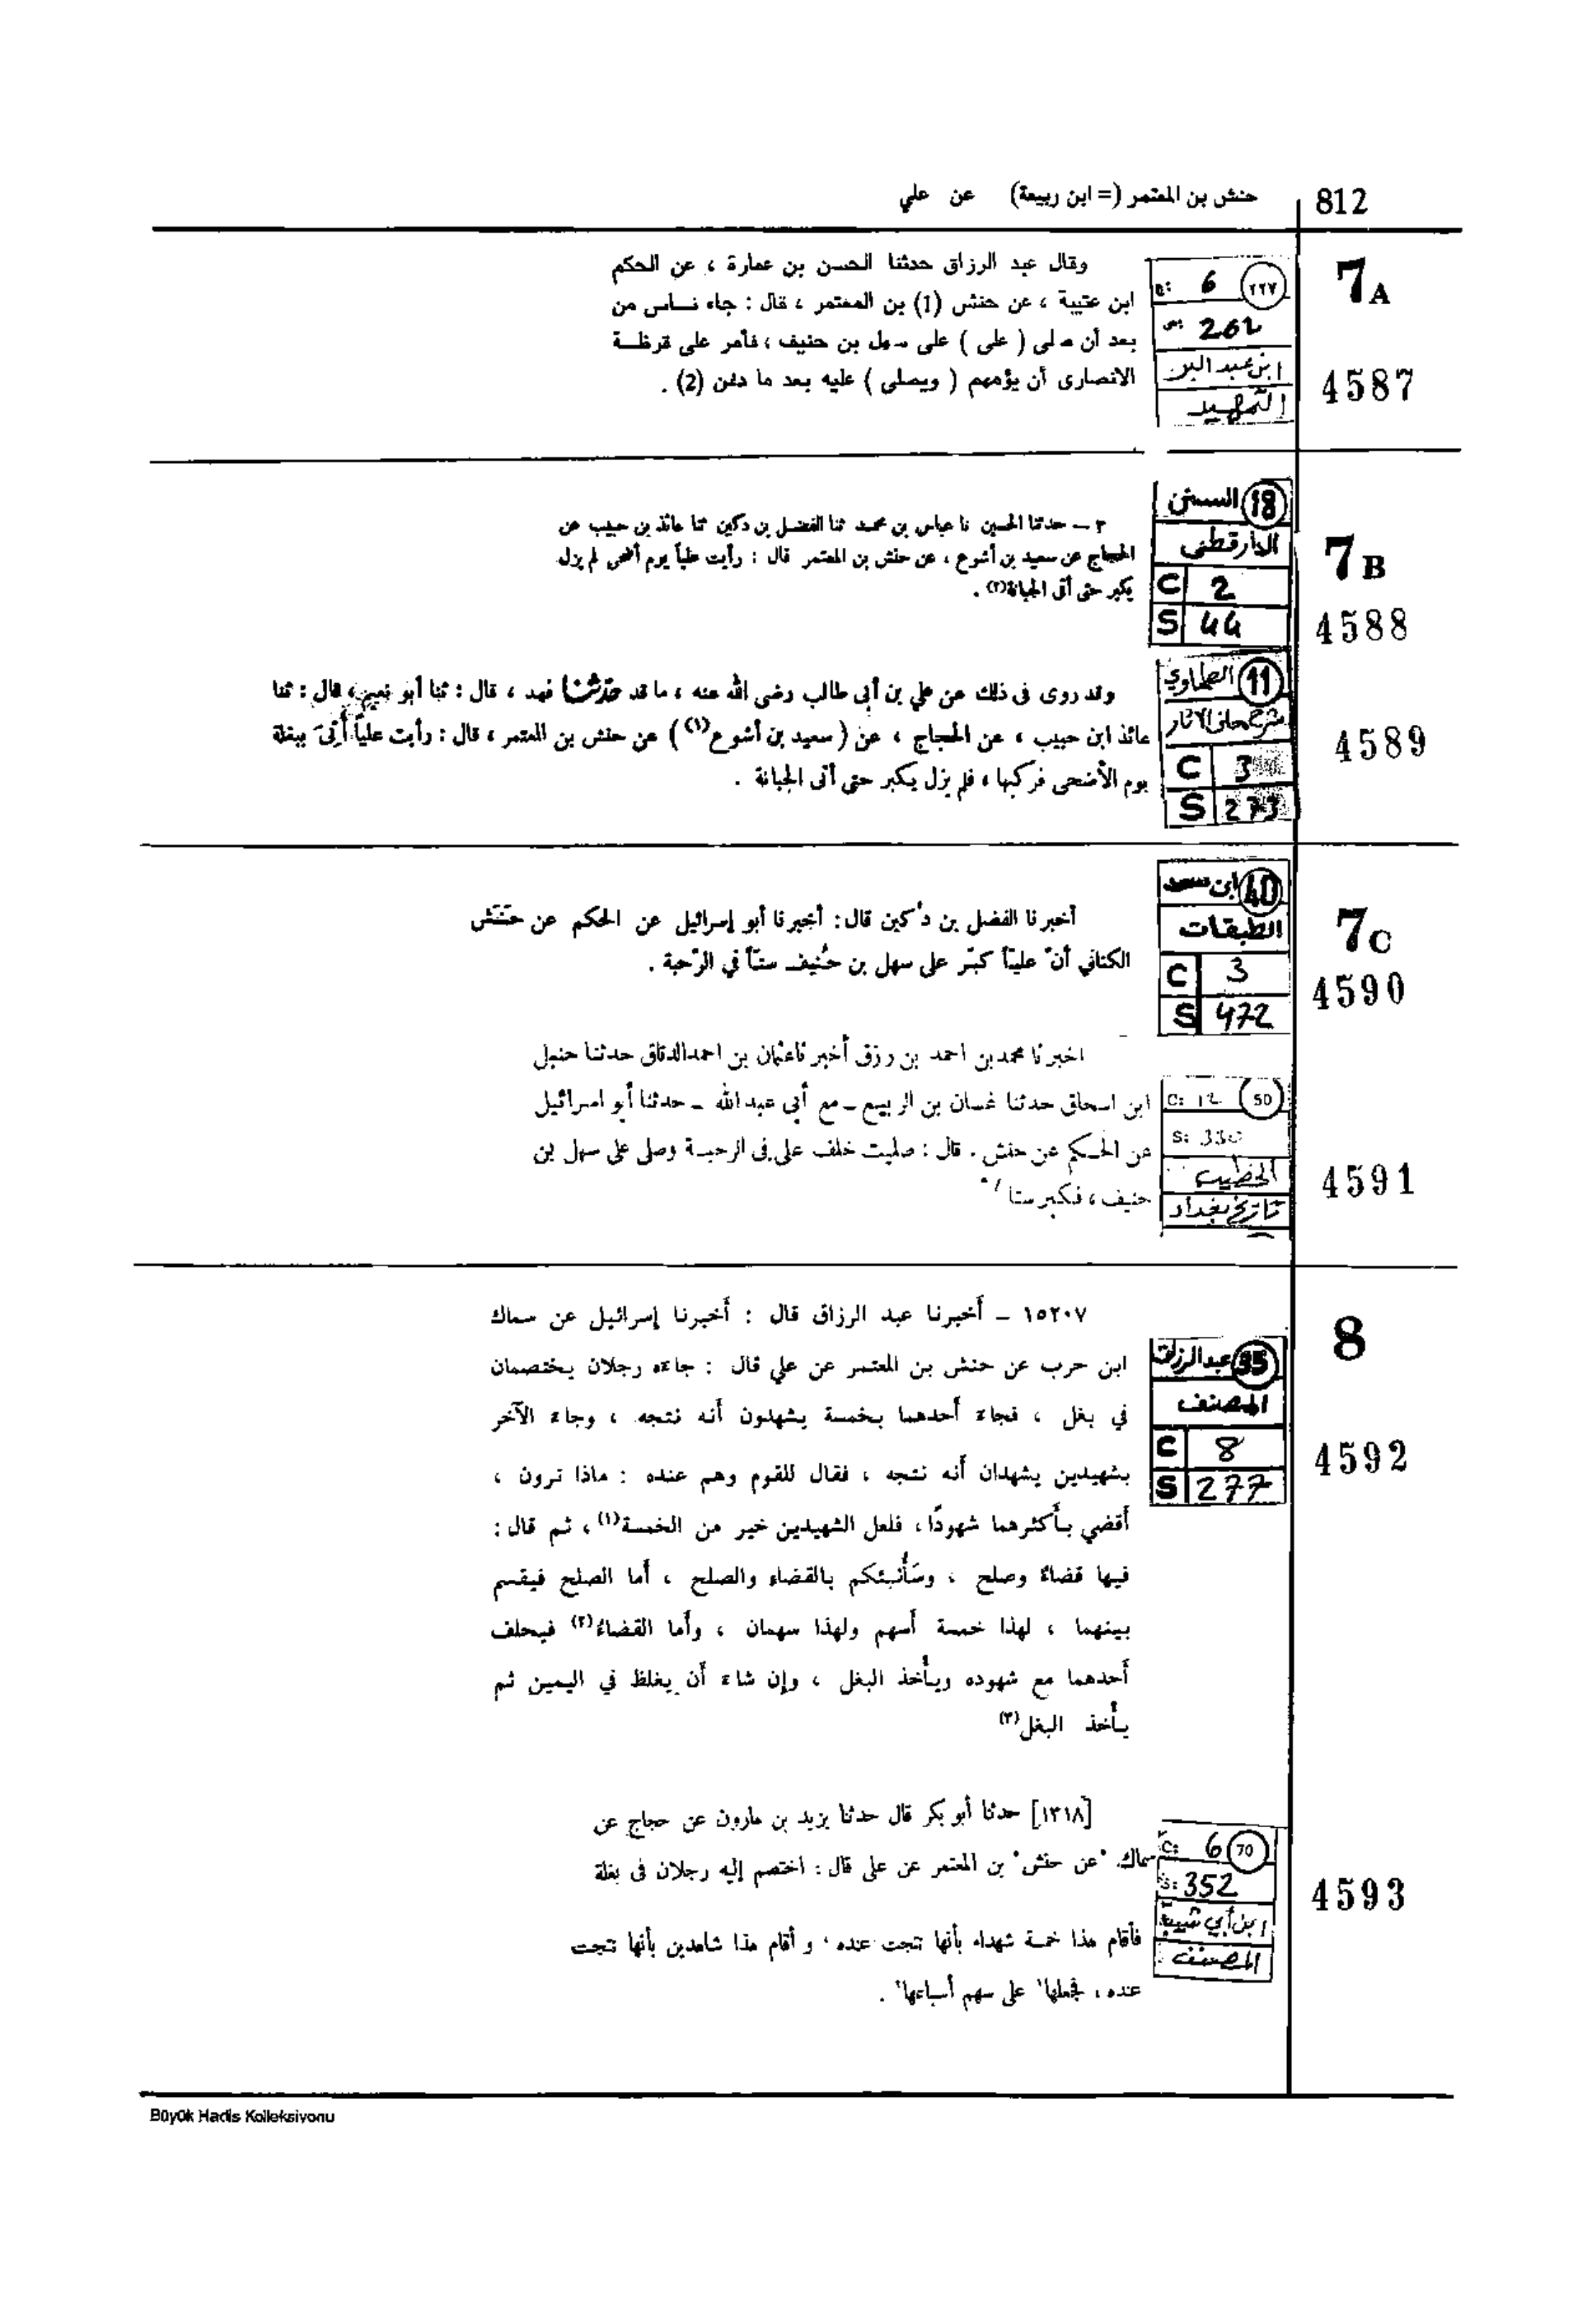 حنش بن المعتمر (= ابن ربيعة) عن علي
812
7A
4587
C: 6 ٢٢٧
ص 262
ابن عبد البر
التمهيد
وقال عبد الرزاق حدثنا الحسن بن عمارة ، عن الحكم
ابن عتيبة ، عن حنش (1) بن المعتمر ، قال : جاء نـاس من
بعد أن صلى ( على ) على سهل بن حنيف ، فأمر على قرظـة
الانصارى أن يؤمهم ( ويصلى ) عليه بعد ما دفن (2) .
7B
4588
18 السنن
الدارقطني
C 2
S 44
٣ – حدثنا الحسين نا عباس بن محمد ثنا الفضل بن دكين ثنا عائذ بن حبيب عن
الحجاج عن سعيد بن أشوع ، عن حنش بن المعتمر قال : رأيت علياً يوم أضحى لم يزل
يكبر حتى أتى الجبانة(٢) .
4589
11 الطحاوي
شرح معاني الآثار
C 3
S 273
وقد روى فى ذلك عن علي بن أبى طالب رضى الله عنه ، ما قد حَدَّثَنَا فهد ، قال : ثنا أبو نعيم ، قال : ثنا
عائذ ابن حبيب ، عن الحجاج ، عن ( سعيد بن أشوع(١) ) عن حنش بن المعتمر ، قال : رأيت علياً أُتِىَ ببغلة
يوم الأضحى فركبها ، فلم يزل يكبر حتى أتى الجبانة .
7C
4590
40 ابن سعد
الطبقات
C 3
S 472
أخبرنا الفضل بن دُكين قال : أخبرنا أبو إسرائيل عن الحكم عن حَنَش
الكناني أنّ عليّاً كبّر على سهل بن حُنيف ستّاً في الرّحبة .
4591
C: 12 50
S: 330
الخطيب
تاريخ بغداد
اخبرنا محمد بن احمد بن رزق أخبرنا عثمان بن احمد الدقاق حدثنا حنبل
ابن اسحاق حدثنا غسان بن الربيع ـ مع أبى عبد الله ـ حدثنا أبو اسرائيل
عن الحكم عن حنش . قال : صليت خلف على فى الرحبة وصلى على سهل بن
حنيف ، فكبر ستا
8
4592
35 عبد الرزاق
المصنف
C 8
S 277
١٥٢٠٧ – أخبرنا عبد الرزاق قال : أخبرنا إسرائيل عن سماك
ابن حرب عن حنش بن المعتمر عن علي قال : جاءه رجلان يختصمان
في بغل ، فجاءَ أحدهما بخمسة يشهدون أنه نتجه ، وجاءَ الآخر
بشهيدين يشهدان أنه نتجه ، فقال للقوم وهم عنده : ماذا ترون ،
أقضي بأكثرهما شهودًا ، فلعل الشهيدين خير من الخمسة(١) ، ثم قال :
فيها قضاءٌ وصلح ، وسَأُنبئكم بالقضاء والصلح ، أما الصلح فيقسم
بينهما ، لهذا خمسة أسهم ولهذا سهمان ، وأما القضاءُ(٢) فيحلف
أحدهما مع شهوده ويأخذ البغل ، وإن شاءَ أن يغلظ في اليمين ثم
يأخذ البغل(٣)
4593
C: 6 70
S: 352
ابن أبي شيبة
المصنف
[١٣١٨] حدثنا أبو بكر قال حدثنا يزيد بن هارون عن حجاج عن
سماك "عن حنش" بن المعتمر عن على قال : اختصم إليه رجلان فى بغلة
فأقام هذا خمسة شهداء بأنها نتجت عنده ، و أقام هذا شاهدين بأنها نتجت
عنده ، فجعلها١ على سهم أسباعها٢ .
Büyük Hadis Kolleksiyonu